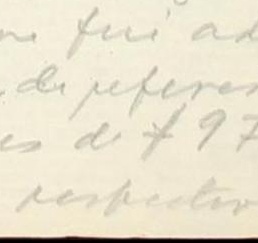 fui ad
de referes
es de $ 97
respectiv